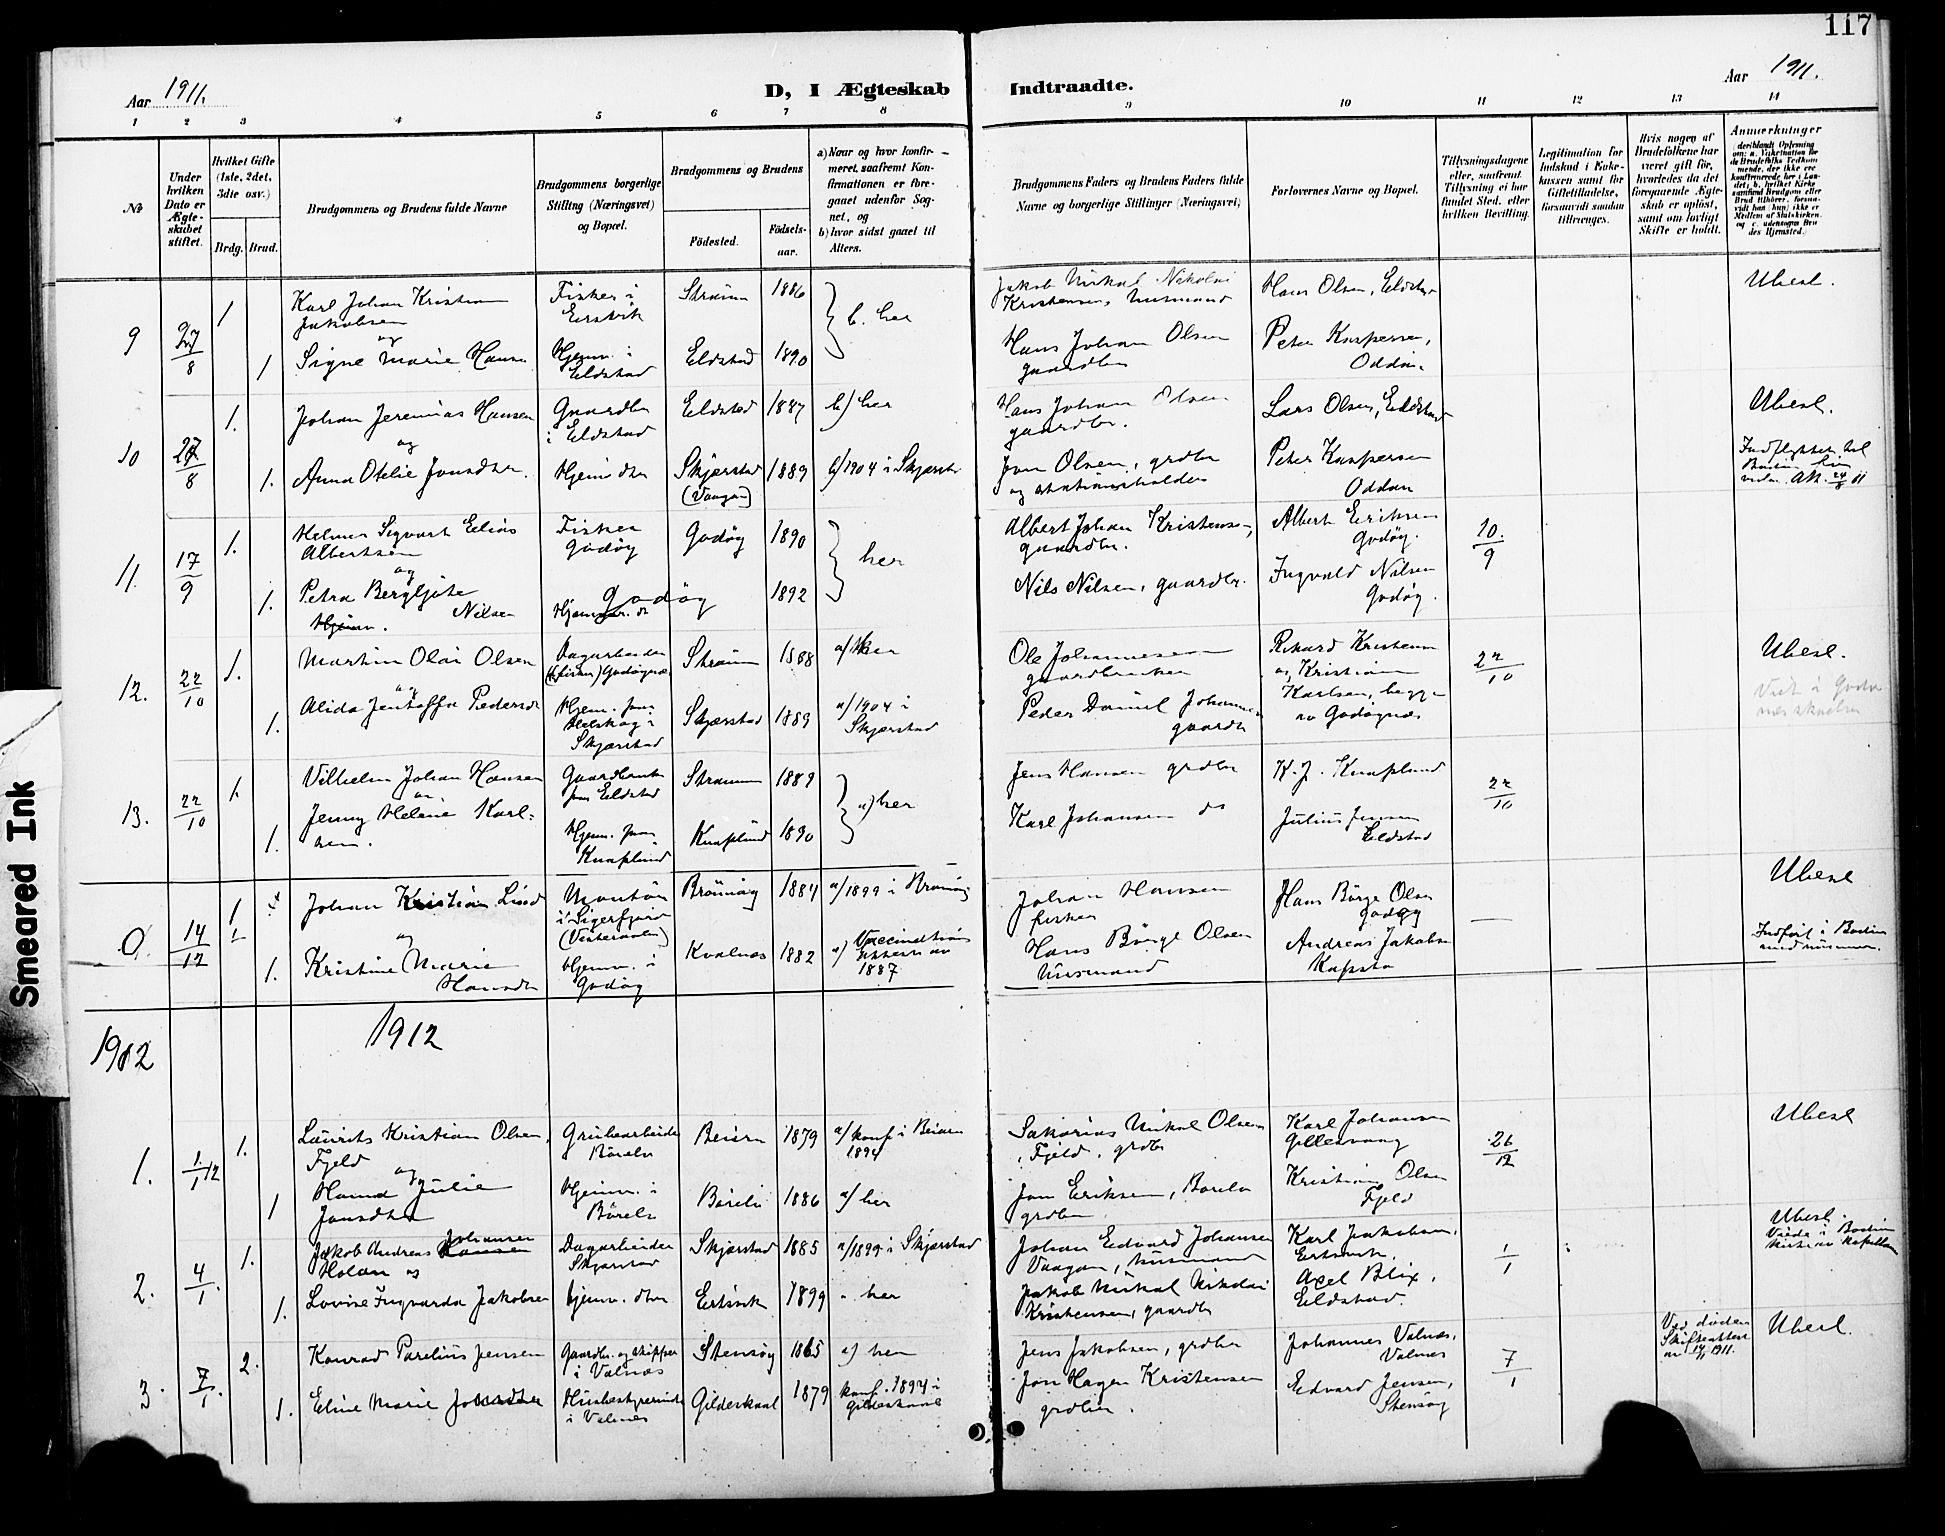 117
Aar 1911.
D, I Ægteskab Indtraadte.
Aar 1911.
1 2 3 4 5 6 7 8 9 10 11 12 13 14
No
Under hvilken Dato er Ægteskabet stiftet.
Hvilket Gifte (1ste, 2det, 3die osv.)
Brdg. Brud.
Brudgommens og Brudens fulde Navne
Brudgommens borgerlige Stilling (Næringsvei) og Bopæl.
Brudgommens og Brudens
Fødested.
Fødselsaar.
a) Naar og hvor konfirmeret, saafremt Konfirmationen er foregaaet udenfor Sognet, og
b) hvor sidst gaaet til Alters.
Brudgommens Faders og Brudens Faders fulde Navne og borgerlige Stillinger (Næringsvei)
Forlovernes Navne og Bopæl.
Tillysningsdagene eller, saafremt Tillysning ei har fundet Sted, efter hvilken Bevilling.
Legitimation for Indskud i Enkekassen samt for Giftetilladelse, forsaavidt saadan tiltrænges.
Hvis nogen af Brudefolkene har været gift før, hvorledes da det foregaaende Ægteskab er opløst, samt om lovligt Skifte er holdt.
Anmærkninger
9 27/8 1 Karl Johan Kristian Jakobsen
og
1 Signe Marie Hansen
Fisker i Ertsvik
Hjemv. i Eldstad
Strøm 1886
Eldstad 1890
b. her
Jakob Mikal Nikolai Kristensen, husmand
Hans Johan Olsen gaardbr
Hans Olsen, Eldstad
Peter Kaspersen, Oddan.
Ubesl.
10 27/8 1. Johan Jeremias Hansen
og
1. Anna Otelie Jonsdtr.
Gaardbr i Eldstad
Hjemv. dtr
Eldstad 1887 b) her
Skjerstad (Vaagan) 1889 b) 1904 i Skjerstad
Hans Johan Olsen gaardbr.
Jon Olsen, grdbr og stationsholder
Lars Olsen, Eldstad
Peter Kaspersen Oddan
Ubesl.
11. 17/9 1. Helmer Sigvart Elias Albertsen
og
1. Petra Bergljote Nilsen
Fisker Godøy
Hjemv. do
Godøy 1890
Godøy 1892
her
Albert Johan Kristensen, gaardbr.
Nils Nilsen, gaardbr.
Albert Eriksen Godøy.
Ingvald Nilsen Godøy.
10./9
12. 22/10 1. Martin Olai Olsen
og
1. Alida Jentoffa Pedersdtr
Dagarbeider (fisker) Godøynæs
Strøm 1888 a) her
Skjerstad 1889 a) 1904 i Skjerstad
Ole Johannesen gaardbruker
Peder Daniel Johannesen gaardbr
Rikard Kristensen og Kristian Karlsen, begge av Godøynæs
22/10
Ubesl.
13. 22/10 1. Vilhelm Johan Hansen
og
1. Jenny Helene Karlsen.
Gaardbruker fra Eldstad
Hjemv. fra Knaplund
Strøm 1889
Knaplund 1890
a) her
Jens Hansen grdbr
Karl Johansen do
K. J. Knaplund
Julius Jensen Eldstad
22/10
0. 14/12 1 Johan Kristian Lind
og
1. Kristine Marie Hansdtr
Montør i Sigerfjord (Vesteraalen)
Hjemv. i Godøy
Brønnøy 1884 a) 1899 i Brønnøy
Kvalnes 1882 a) Vaccinations Attest av 1887
Johan Hansen fisker
Hans Børge Olsen husmand
Hans Børge Olsen Godøy
Andreas Jakobsen Kapstø
—
Ubesl
Indført i Bodin med nummer.
1912 1912
1. 1/1 12 1. Laurits Kristian Olsen, Fjeld
og
1 Hanna Julie Jonsdtr
Grubearbeider Børelv
Hjemv. i Børelv
Beiern 1879 a) konf. i Beiarn 1894
Børelv 1886 a) her
Sakarias Mikal Olsen, Fjeld, grdbr
Jon Eriksen, Børelv grdbr.
Karl Johansen Gillesvaag
Kristian Olsen Fjeld
26/12
Ubesl
2. 4/1. 1. Jakob Andreas Johansen Holan og
1. Lovise Ingvarda Jakobsen
Dagarbeider Skjerstad
hjemv. dtr
Skjerstad 1885 a) 1899 i Skjerstad
Ertsvik 1899 - her
Johan Edvard Johansen Vaagan, husmand
Jakob Mikal Nikolai Kristensen, gaardbr
Karl Jakobsen, Ertsvik.
Axel Blix, Eldstad.
1/1
Ubesl.
Viede i Bodin
3. 7/1. 2. Konrad Parelius Jensen
1. Eline Marie Jonsdtr
Gaardbr. og skipper i Valnæs
Husbestyrerinde i Valnes
Stensøy 1865 a) her
Gildeskaal 1879 konf. 1894 i Gildeskaal
Jens Jakobsen, grdbr
Jon Hagen Kristensen grdbr.
Johannes Valnes, Valnes
Edvard Jensen, Stensøy
7/1
Ved døden Skifteattest av 14/11 1911.
Ubesl.
Smeared Ink